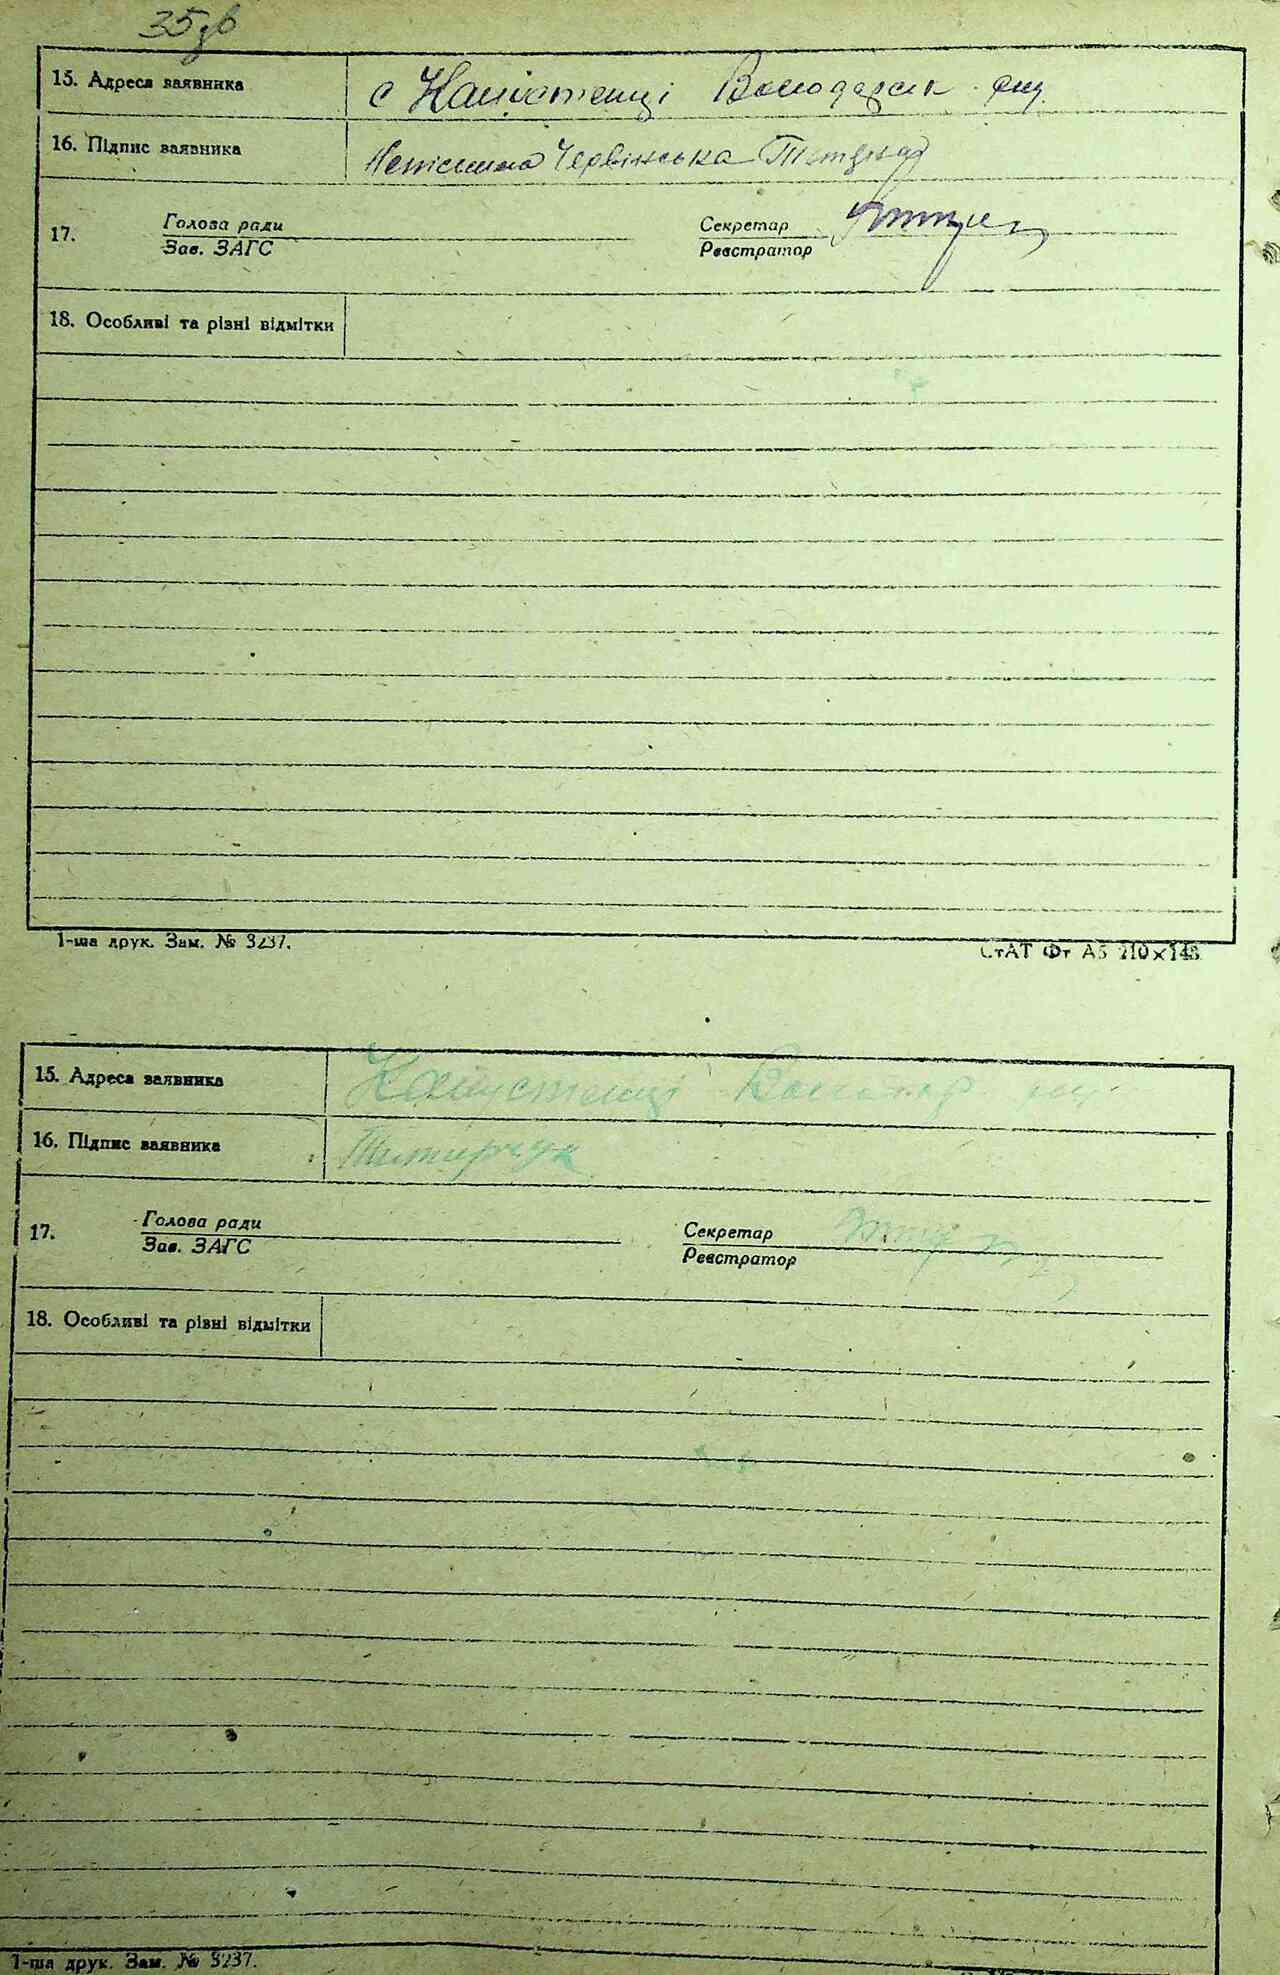 35зв
15. Адреса заявника с Капустенці Володарськ. р-ну
16. Підпис заявника Неписьмена Червінська
17. Голова ради Секретар
Зав. ЗАГС Реєстратор
18. Особливі та різні відмітки
1-ша друк. Зам. № 3237.
СтАТ Фт А5 210×148
15. Адреса заявника Капустенці р-ну
16. Підпис заявника
17. Голова ради Секретар
Зав. ЗАГС Реєстратор
18. Особливі та різні відмітки
1-ша друк. Зам. № 3237.